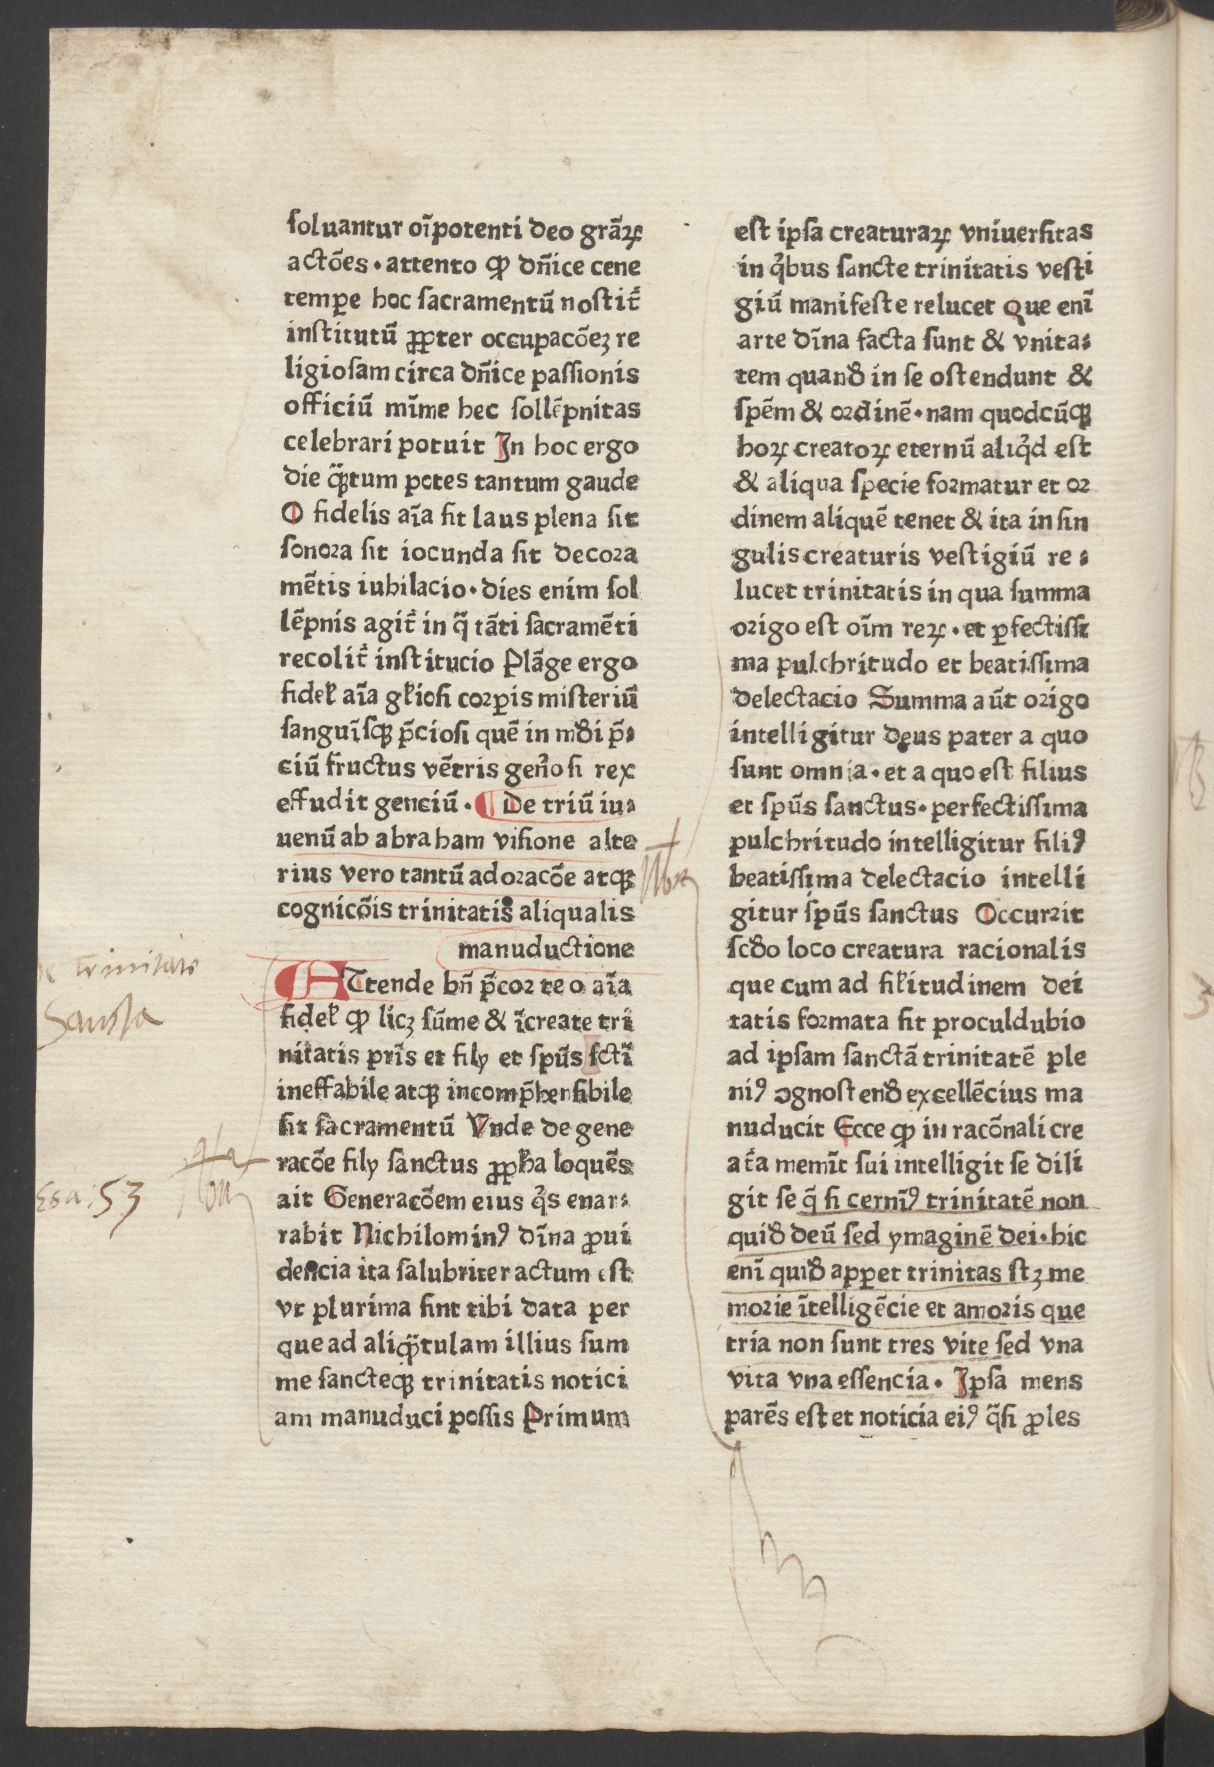 soluantur oı̄potenti deo grāꝝ
actōes · attento ꝙ dn̄ice cene
tempe hoc sacramentū nostit᷑
institutū ꝓpter occupacōeꝫ re
ligiosam circa dn̄ice passionis
officiū mīme hec sollēpnitas
celebrari potuit In hoc ergo
die qͣ̄tum potes tantum gaude
O fidelis aı̄a fit laus plena sit
sonora sit iocunda sit decora
mētis iubilacio · dies enim sol
lēpnis agit᷑ in q̄ tāti sacramēti
recolit᷑ institucio Plāge ergo
fidel̛ aı̄a gl̛iosi corꝑis misteriū
sanguı̄sqꝫ p̄ciosi quē in mūdi p̄⸗
ciū fructus vētris gen̄osi rex
effudit genciū · De triū iu⸗
uenū ab abraham visione alte
rius vero tantū adoracōe atqꝫ
cognicōis trinitatis aliqualis
manuductione
ATtende bn̄ p̄cor te o aı̄a
fidel̛ ꝙ licꝫ sūme & ı̄create tri
nitatis pr̄is et fily et spūs sctı̄
ineffabile atqꝫ incomp̄hensibile
sit sacramentū Vnde de gene
racōe fily sanctus ꝓph̄a loquēs
ait Generacōem eius qͥs enar⸗
rabit Nichilominꝰ dı̄na ꝓui
dencia ita salubriter actum est
vt plurima sint tibi data per
que ad aliqͣ̄tulam illius sum
me sancteqꝫ trinitatis notici
am manuduci possis Primum
est ipsa creaturaꝝ vniuersitas
in qͥbus sancte trinitatis vesti
giū manifeste relucet Que enı̄
arte dı̄na facta sunt & vnita⸗
tem quand̛ in se ostendunt &
spēm & ordinē · nam quodcūqꝫ
hoꝝ creatoꝝ eternū aliqͥd est
& aliqua specie formatur et or
dinem aliquē tenet & ita in sin
gulis creaturis vestigiū re⸗
lucet trinitatis in qua summa
origo est oı̄m reꝝ · et ꝑfectissi
ma pulchritudo et beatissima
delectacio Summa aūt origo
intelligitur deus pater a quo
sunt omnia · et a quo est filius
et spūs sanctus · perfectissima
pulchritudo intelligitur filiꝰ
beatissima delectacio intelli
gitur spūs sanctus Occurrit
scd̛o loco creatura racionalis
que cum ad sil̛itudinem dei
tatis formata sit proculdubio
ad ipsam sanctā trinitatē ple
niꝰ ꝯgnostend̛ excellēcius ma
nuducit Ecce ꝙ in racōnali cre
at᷑a memı̄t sui intelligit se dili
git se q̄ si cernı̄ꝰ trinitatē non
quid̛ deū sed ymaginē dei · hic
enı̄ quid̛ apꝑet trinitas stꝫ me
morie ı̄telligēcie et amoris que
tria non sunt tres vite sed vna
vita vna essencia · Ipsa mens
parēs est et noticia eiꝰ q̄si ꝓles
trinitate
Sancta
Esa: 53